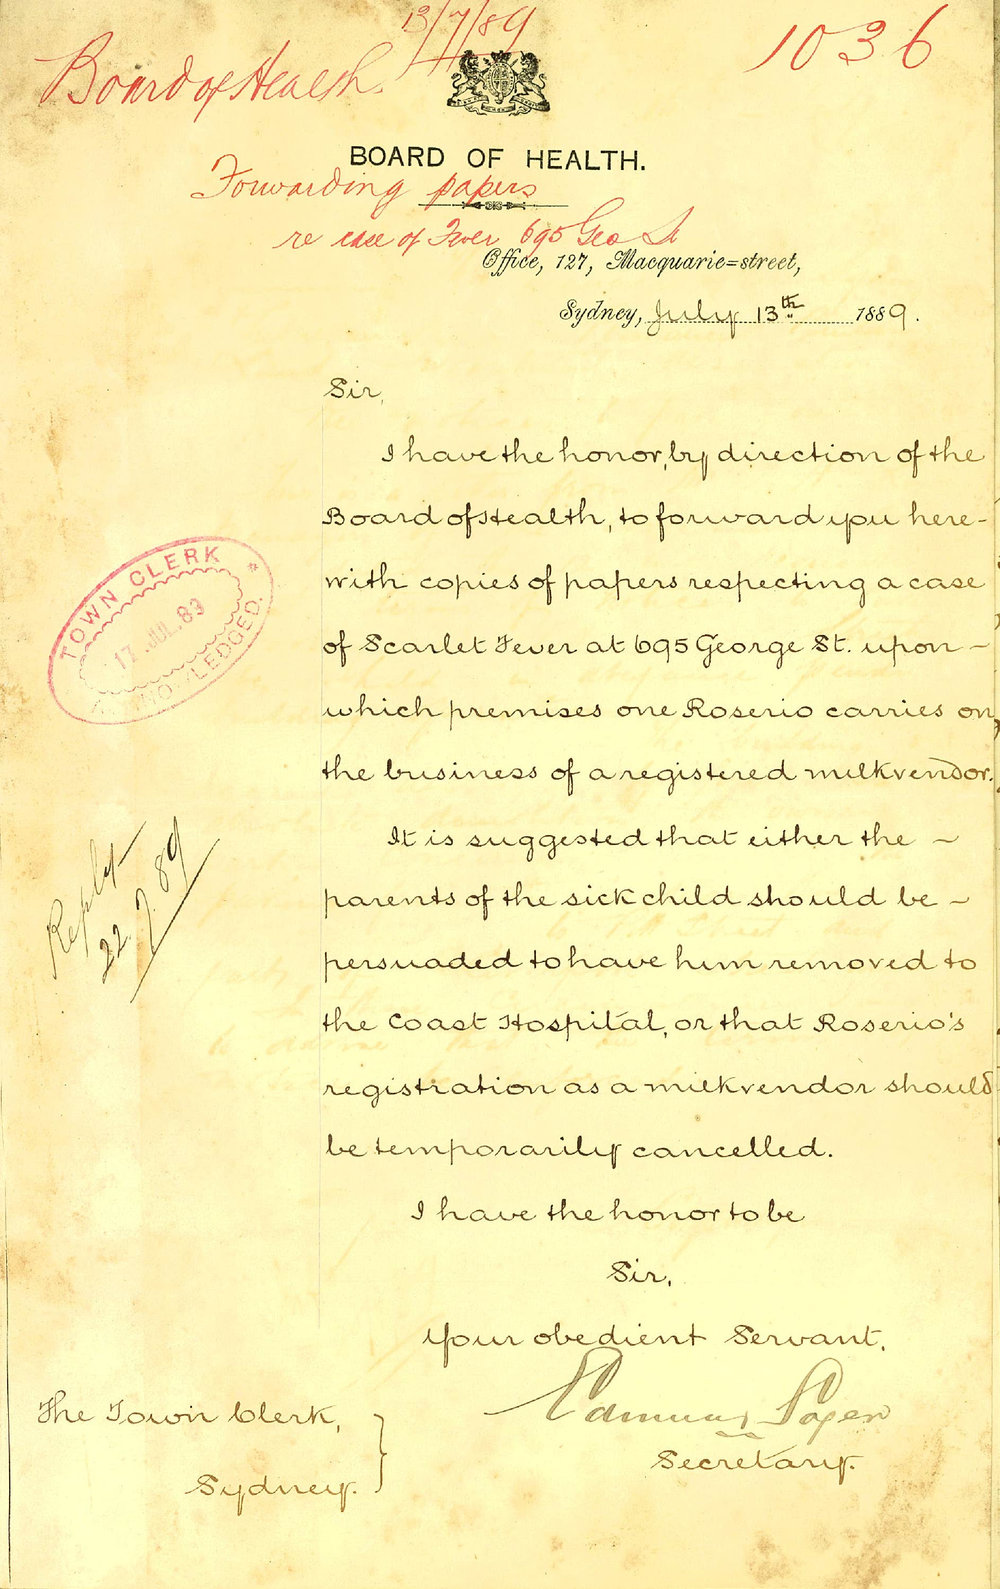 13/7/89
1036
Board of Health.
BOARD OF HEALTH.
Forwarding papers
re case of Fever 695 Geo St
Office, 127, Macquarie=street,
Sydney, July 13th 1889.
Sir,
I have the honor, by direction of the
Board of Health, to forward you here-
with copies of papers respecting a case
of Scarlet Fever at 695 George St. upon ~
which premises one Roserio carries on
the business of a registered milkvendor.
It is suggested that either the ~
parents of the sick child should be ~
persuaded to have him removed to
the Coast Hospital, or that Roserio's
registration as a milkvendor should
be temporarily cancelled.
I have the honor to be
Sir,
Your obedient Servant.
Edmund Sager
Secretary.
The Town Clerk,
Sydney.
TOWN CLERK
17 JUL. 89
Reply
22.7.89